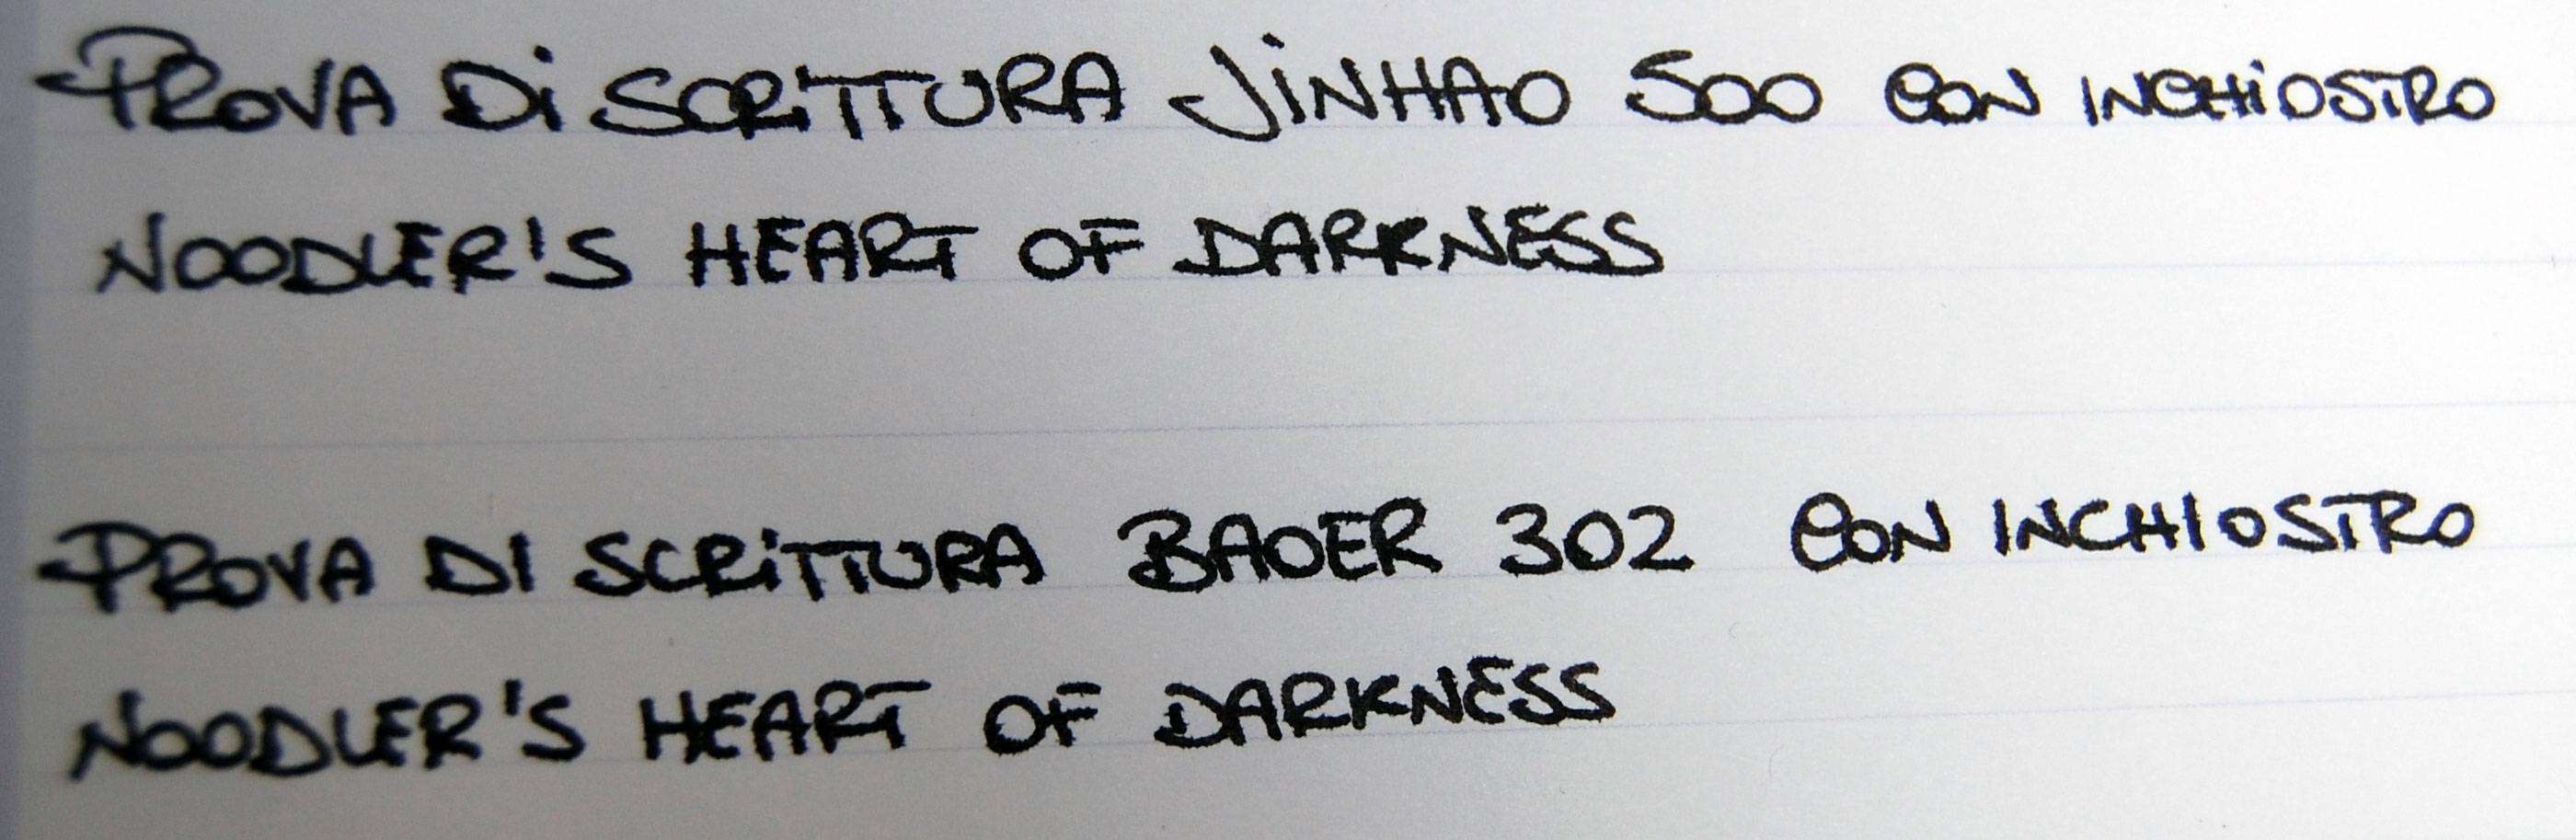 PROVA Di SCRiTTURA JiNHAO 500 CON INCHiOSTRO
NOODLER'S HEART OF DARKNESS
PROVA DI SCRiTTURA BAOER 302 CON INCHIOSTRO
NOODLER'S HEART OF DARKNESS